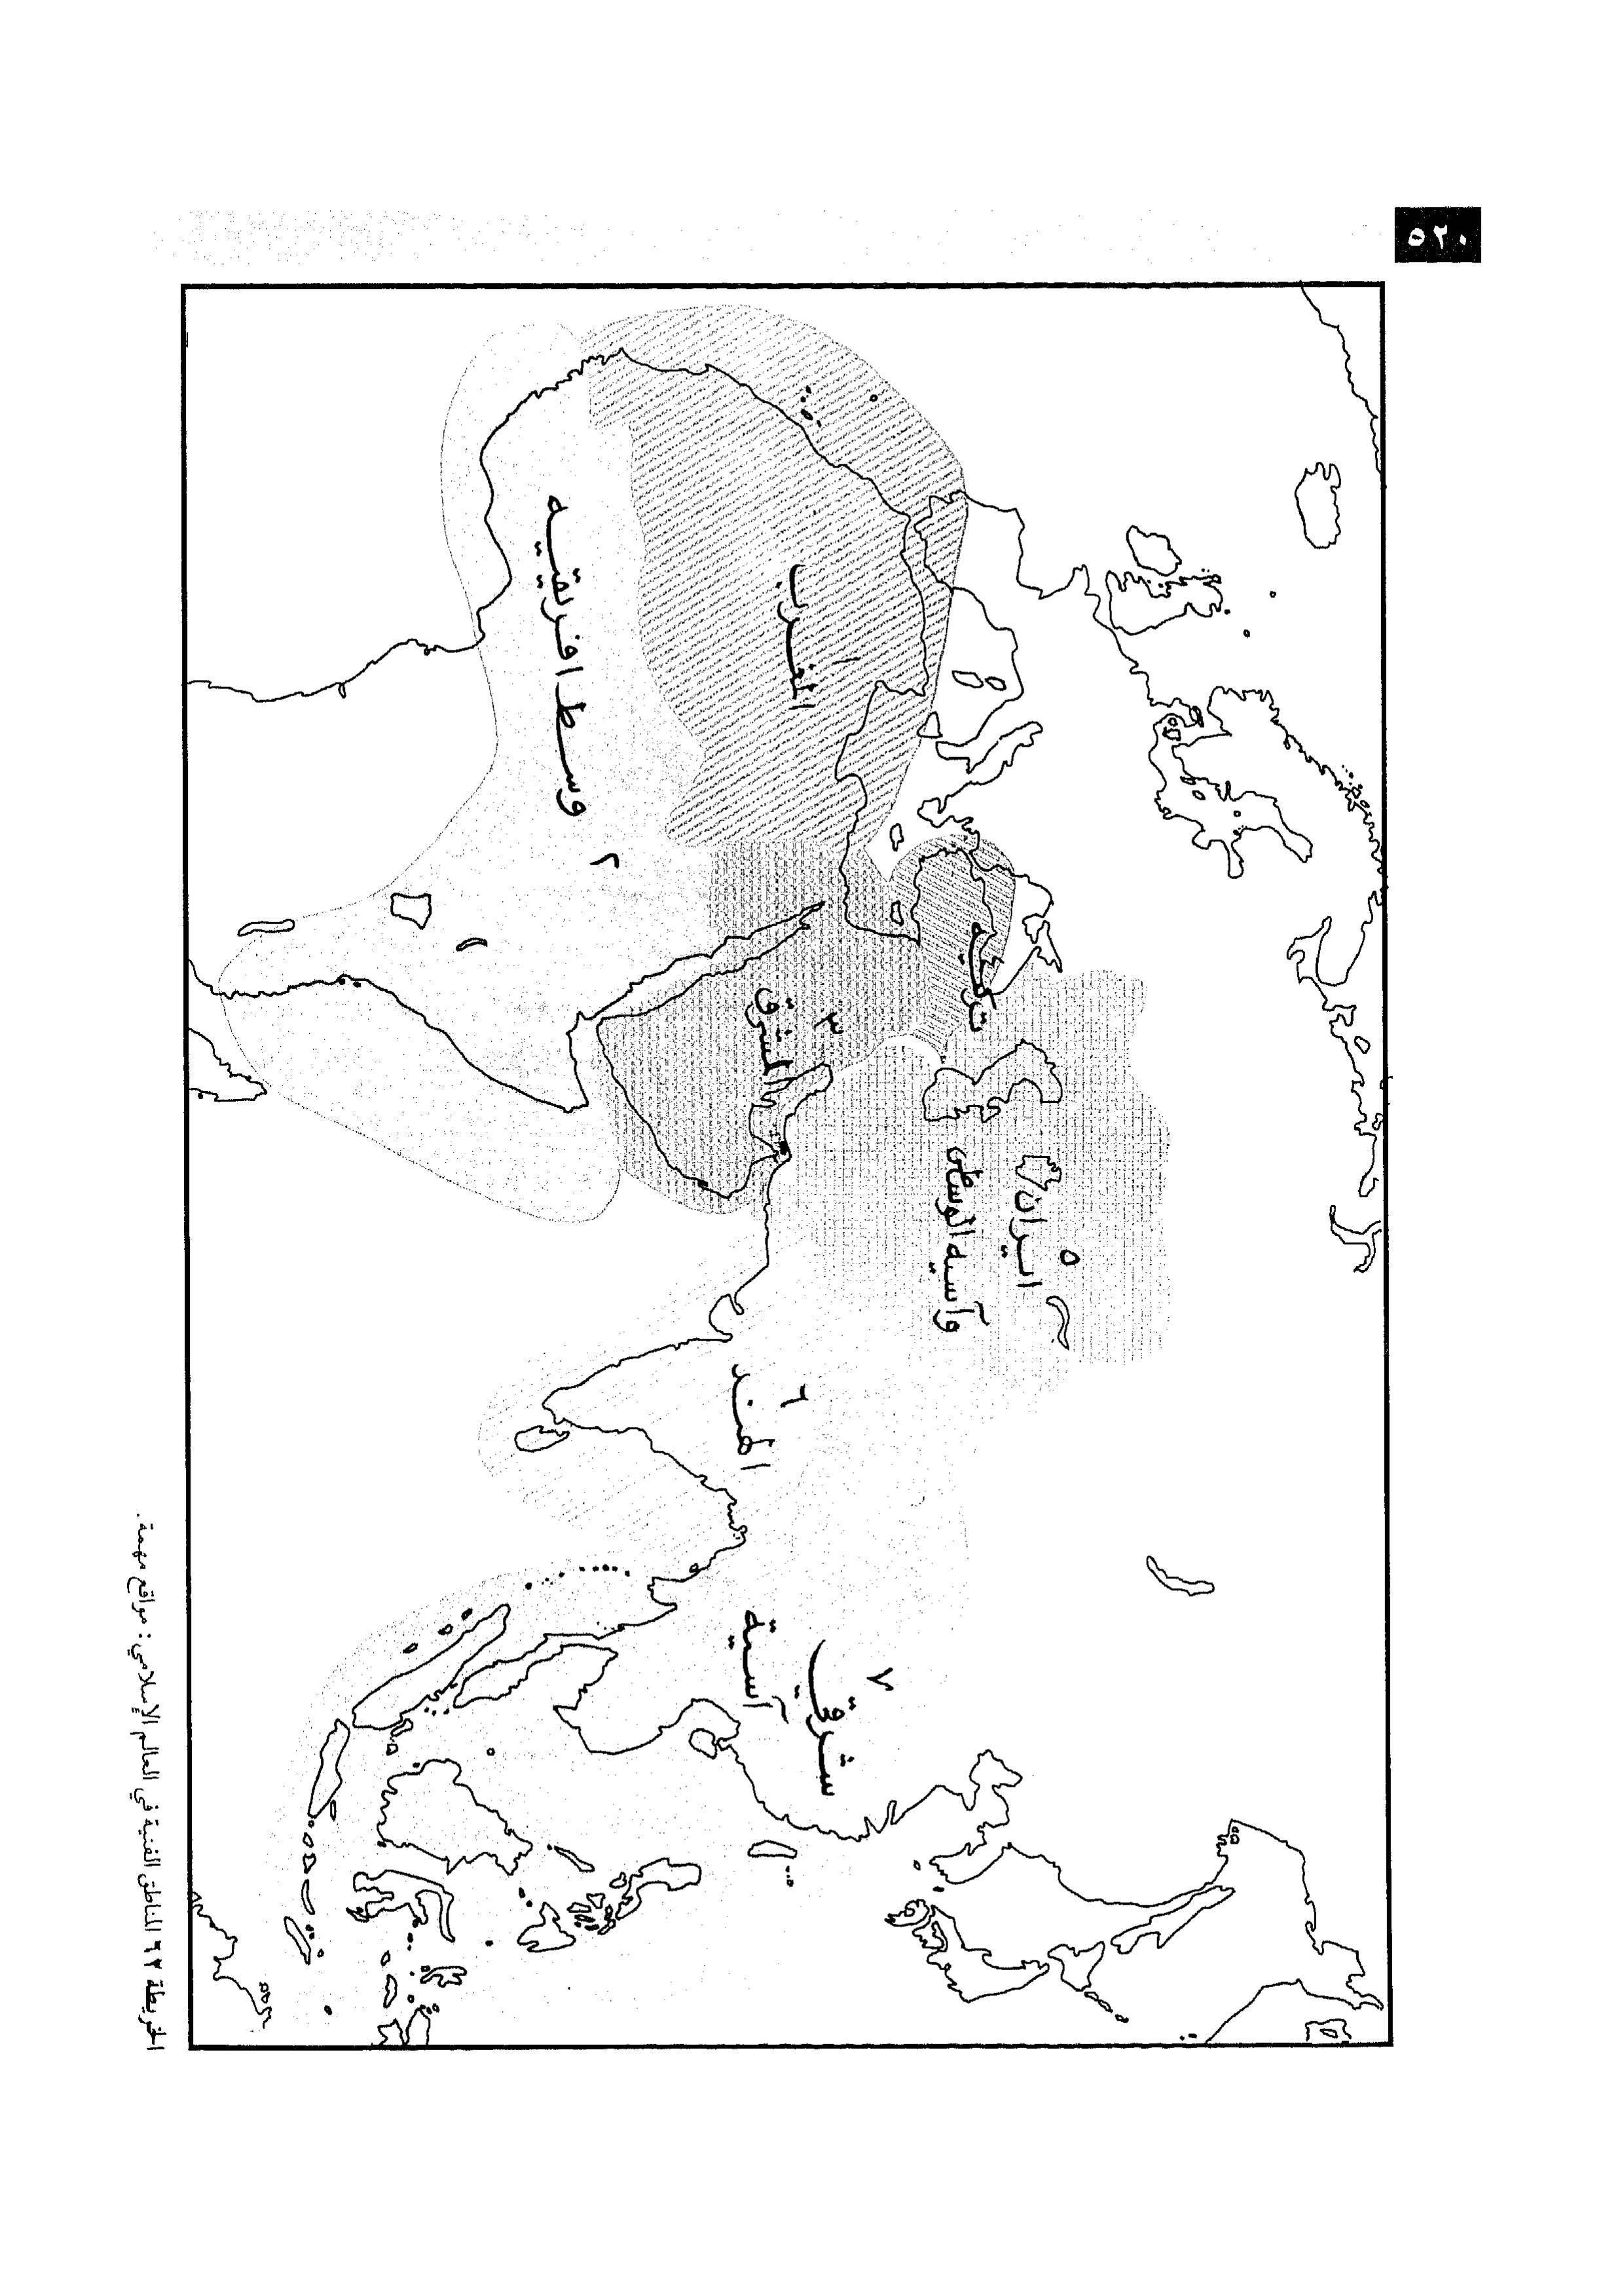 ٥٢٠
المغرب
١
وسط افريقيه
٢
المشرق
٣
تركيه
ايران
وآسيه الوسطى
٥
الهند
٦
شرقي
آسية
٧
الخريطة ٦٢ المناطق الفنية في العالم الإسلامي: مواقع مهمة.